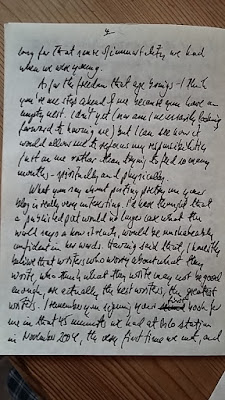 4
long for that sense of immortality we had
when we were young.
As for the freedom that age brings - I think
you're one step ahead of me because you have an
empty nest. I don't yet (nor am I necessarily looking
forward to having one) but I can see how it
would allow me to refocus my responsibilities
just on me rather than trying to feed so many
mouths - spiritually and physically.
What you say about putting poetry on your
blog is really very interesting. I'd have thought that
a published poet would no longer care what the
world says now it went, would be unshakeably
confident in her words. Having said that, I honestly
believe that writers who worry about what they
write, who think what they write may not be good
enough, are actually the best writers, the greatest
writers. I remember you signing your first book for
me in that 45 minutes we had at Oslo station
in November 2004, the very first time we met, and